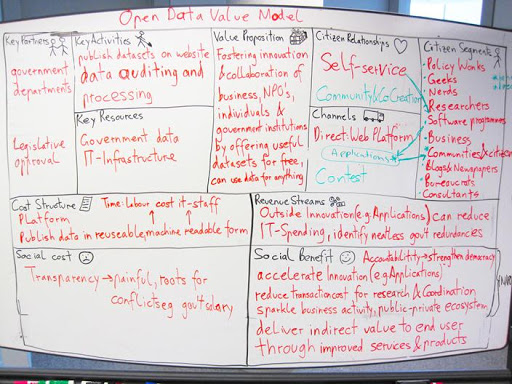 Open Data Value Model
Key Partners
government
departments
Legislative
approval
Key Activities
publish datasets on website
data auditing and
processing
Key Resources
Government data
IT-Infrastructure
Value Proposition
Fostering innovation
& collaboration of
business, NPO's,
individuals &
government institutions
by offering useful
datasets for free,
can use data for anything
Citizen Relationships
Self-service
Community & CoCreation
Channels
Direct: Web Platform
Applications
Contest
Citizen Segments
Policy Wonks
Geeks
Nerds
Researchers
Software programmers
Business
Communities & citizen
Blogs & Newspapers
Bureaucrats
Consultants
Cost Structure
Time: Labour cost it-staff
Platform
Publish data in reuseable, machine readable form
Revenue Streams
Outside Innovation (e.g Applications) can reduce
IT-Spending, identify needless gov't redundancies
Social cost
Transparency → painful, roots for
conflicts eg gov't salary
Social benefit
Accountability → strengthen democracy
accelerate Innovation (e.g Applications)
reduce transaction cost for research & Coordination
sparkle business activity, public-private ecosystem
deliver indirect value to end user
through improved services & products